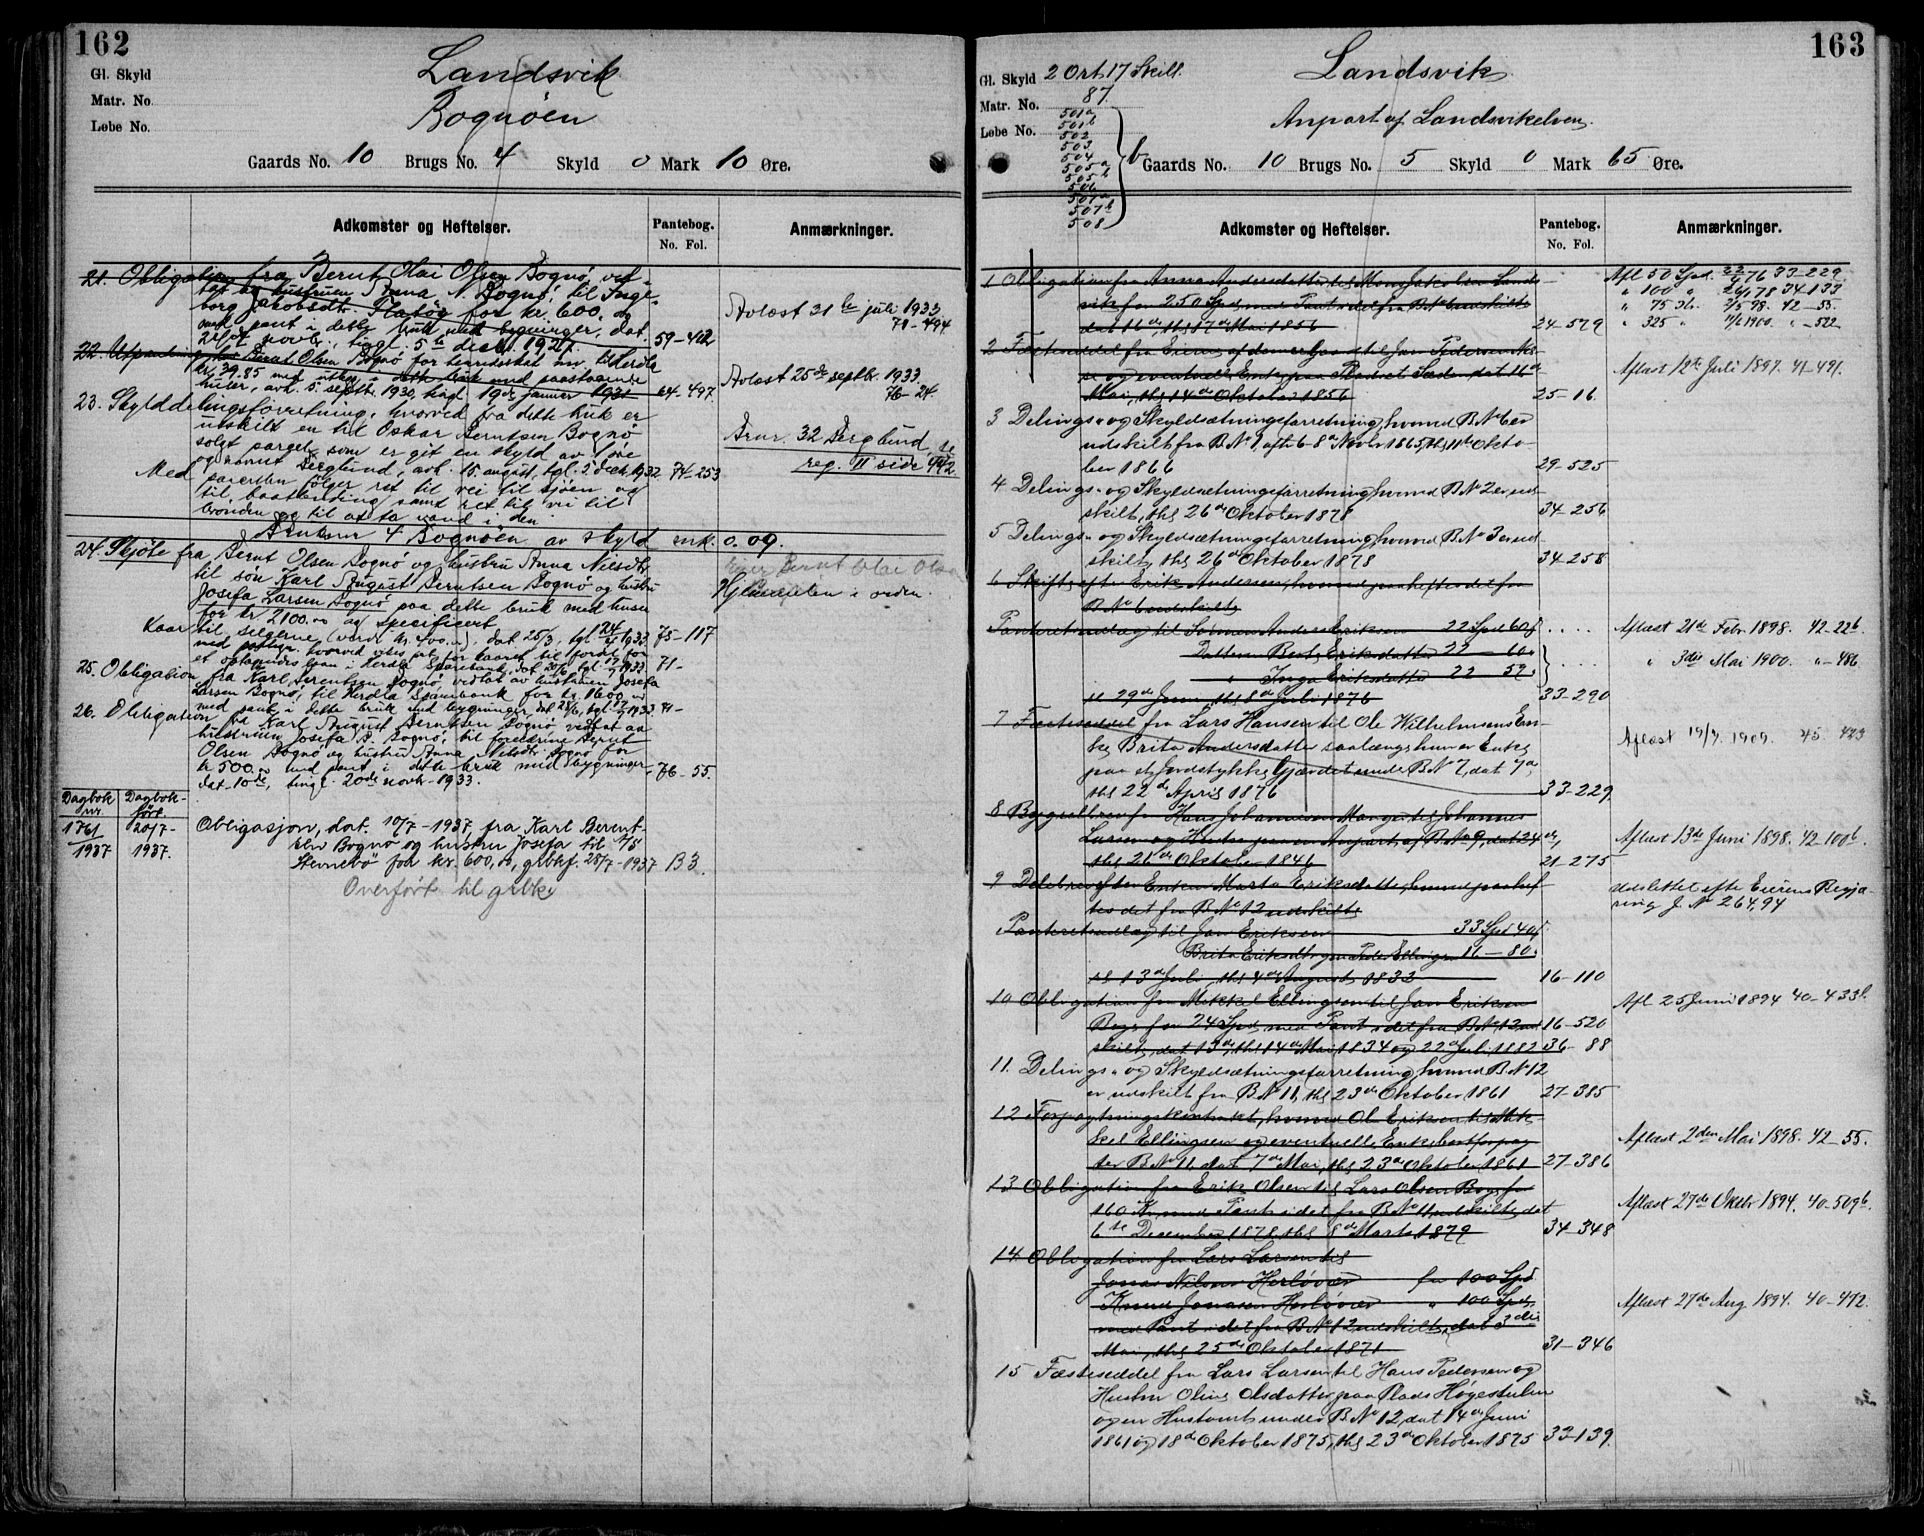 162
Landsvik
Gl. Skyld
Matr. No.
Løbe No.
Bognøen
Gaards No. 10 Brugs No. 4 Skyld 0 Mark 10 Øre.
Adkomster og Heftelser.
Pantebog.
No. Fol.
Anmærkninger.
21. Obligation fra Bernt Olai Olsen Bognø, ved-
tat av hustruen Anna N. Bognø, til Inge-
borg Jakobsdtr. Flatøy for kr. 600, og
med pant i dette bruk med bygninger, dat.
novbr., tingl. 5te decbr. 1921. 59-412
Avlæst 31te juli 1933
71-494
22. Utpantning hos Bernt Olsen Bognø for herredsskat m.v. til Herdla
kr. 39.85 med utlæg i dette bruk med paastaaende
huser, avh. 5 septbr. 1930, tingl. 19de januar 1931 64-497.
Avlæst 25de septbr. 1933
76-24.
23. Skylddelingsforretning, hvorved fra dette bruk er
utskilt en til Oskar Berntsen Bognø
solgt parcel, som er git en skyld av 1 øre
og navnet Berglund, avh. 15 august, tgl. 2 decbr. 1932 74-253
Brnr. 32 Berglund,
reg. II side 442.
Med parcellen følger ret til vei til sjøen og
til baatlending samt ret til vei til
brønden og til at ta vand i den.
Bruksnr 4 Bognøen av skyld mrk. 0.09.
24. Skjøte fra Bernt Olsen Bognø og hustru Anna Nilsdtr.
til søn Karl August Berntsen Bognø og hustru
Josefa Larsen Bognø paa dette bruk med huser
for kr 2100.00 og specificert
Kaar til selgerne (værdi kr. 400.00), dat 25/3, tgl. 24/4 1933 75-117
Hjemmelen i orden.
med påtegn. hvorved vikes prt. for kaaret til fordel for
et optagendes laan i Herdla Sparebank, dat. 20/6, tgl. 1933. 71-
25. Obligation fra Karl Berntsen Bognø, vedtat av hustruen Josefa
Larsen Bognø, til Herdla Sparebank for kr. 1600,00
med pant i dette bruk med bygninger, dat. tgl. 1933 71-
26. Obligation fra Karl August Berntsen Bognø vedtat av
hustruen Josefa B. Bognø, til foreldrene Bernt
Olsen Bognø og hustru Anna Nilsdtr. Bognø for
kr 500.00 med pant i dette bruk med bygninger,
dat. 10de, tingl. 20de novbr. 1933. 76-55.
Dagbok nr. Dagbok-ført
1761/1937 20/7-1937.
Obligasjon, dat. 10/7-1937, fra Karl Bernt-
sen Bognø og hustru Josefa til A/S
Stevnebø for kr. 600,00, grbkf. 28/7-1937 B3.
Overført til grbk.
163
Gl. Skyld 2 Ort 17 Skill.
Landsvik
Matr. No. 87
Løbe No.
501a
501b
502
503
504
505a
505b
506
507a
507b
508
Anpart af Landsvikelven.
Gaards No. 10 Brugs No. 5 Skyld 0 Mark 65 Øre.
Adkomster og Heftelser.
Pantebog.
No. Fol.
Anmærkninger.
1 Obligation fra Anna Andersdatter til Mons Jakobsen Lands-
vik for 250 Spd. med Pant i det fra B.No 6 udskilte
dat 16de, thl 17de Mai 1856 24-579
Afl. 50 Spd. 22/6 76 33-229
" 100 " 26/1 78 34-133
" 75 " 2/5 98. 42-55
" 325 " 1900. " -522
2 Fæsteseddel fra Eieren af denne Gaard til Jan Pedersen Nes-
se og eventuelle Enke paa Pladset Sæden dat 16de
Mai, thl 14de Oktober 1856 25-16.
Aflæst 12te Juli 1897. 41-491.
3 Delings- og Skyldsætningsforretning, hvorved B.No 6 er
udskilt fra B.No 1, afh 6-8de Novbr 1865, thl 11te Okto-
ber 1866 29-525
4 Delings- og Skyldsætningsforretning, hvorved B.No 2 er ud-
skilt, thl 26de Oktober 1878 34-256
5 Delings- og Skyldsætningsforretning, hvorved B.No 3 er ud-
skilt, thl 26de Oktober 1878 34-258
6 Skifte efter Erik Andersen, hvorved paaheftes det fra
B.No 6 udskilte
Panteretsudlæg til Sønnen Anders Eriksen 22 Spd 60 s
Datteren Berte Eriksdatter 22 - 60 "
" Inga Eriksdatter 22 52 "
sl 29de Juni, thl 8de Juli 1876 33-290
Aflæst 21de Febr. 1898. 42-22b.
" 3die Mai 1900. " -486.
7 Fæsteseddel fra Lars Hansen til Ole Wilhelmsens En-
ke, Brita Andersdatter saalænge hun er Enke
paa et Jordstykke Gjærdet under B.No 7, dat 7de,
thl 22de April 1876 33-229
Aflæst 19/7. 1909. 45. 423
8 Bygselbrev fra Hans Johannesen Manger til Johannes
Larsen og Hustru paa en Anpart af B.No 9, dat 24de,
thl 26de Oktober 1846 21-275
Aflæst 13de Juni 1898. 42-100b.
9 Delebrev efter Enken Marta Eriksdatter, hvorved paahef-
tes det fra B.No 12 udskilte
Panteretsudlæg til Jan Eriksen 33 Spd 40 s
Brita Eriksdtr og Mand Peder Ellingsen 16 - 80 "
sl 13de Juli, thl 4de August 1832 16-110
Udslettet efter Eierens Begjæ-
ring J. No 264, 94
10 Obligation fra Mikkel Ellingsen til Jan Eriksen
Bogø for 24 Spd, med Pant i det fra B.No 12 ud- 16-520
skilte, dat 13de, thl 14de Mai 1834 og 22de Juli 1882 36-88
Afl. 25 Juni 1894 40-433b.
11. Delings- og Skyldsætningsforretning, hvorved B.No 12
er udskilt fra B.No 11, thl 23de Oktober 1861 27-385
12 Forpagtningskontrakt, hvorved Ole Eriksen til Mik-
kel Ellingsen og eventuelle Enke bortforpag-
ter B.No 11, dat 7de Mai, thl 23de Oktober 1861 27-386
Aflæst 2den Mai 1898. 42-55.
13 Obligation fra Erik Olsen til Lars Olsen Bogø for
160 Kr, med Pant i det fra B.No 11 udskilte, dat
6te December 1878, thl 8de Marts 1879 34-348
Aflæst 27de Oktbr 1894. 40-509b.
14 Obligation fra Lars Larsen til
Jonas Nilsen Herløvær for 100 Spd
Knud Jonasen Herløvær " 100 Spd,
med Pant i det fra B.No 12 udskilte, dat 3die
Mai, thl 25de Oktober 1871 31-346
Aflæst 27de Aug 1894. 40-472.
15 Fæsteseddel fra Lars Larsen til Hans Pedersen og
Hustru Oline Olsdatter paa Plads Høgestulen
og en Hustomt under B.No 12, dat 14de Juni
1861 og 18de Oktober 1875, thl 23de Oktober 1875 33-139.